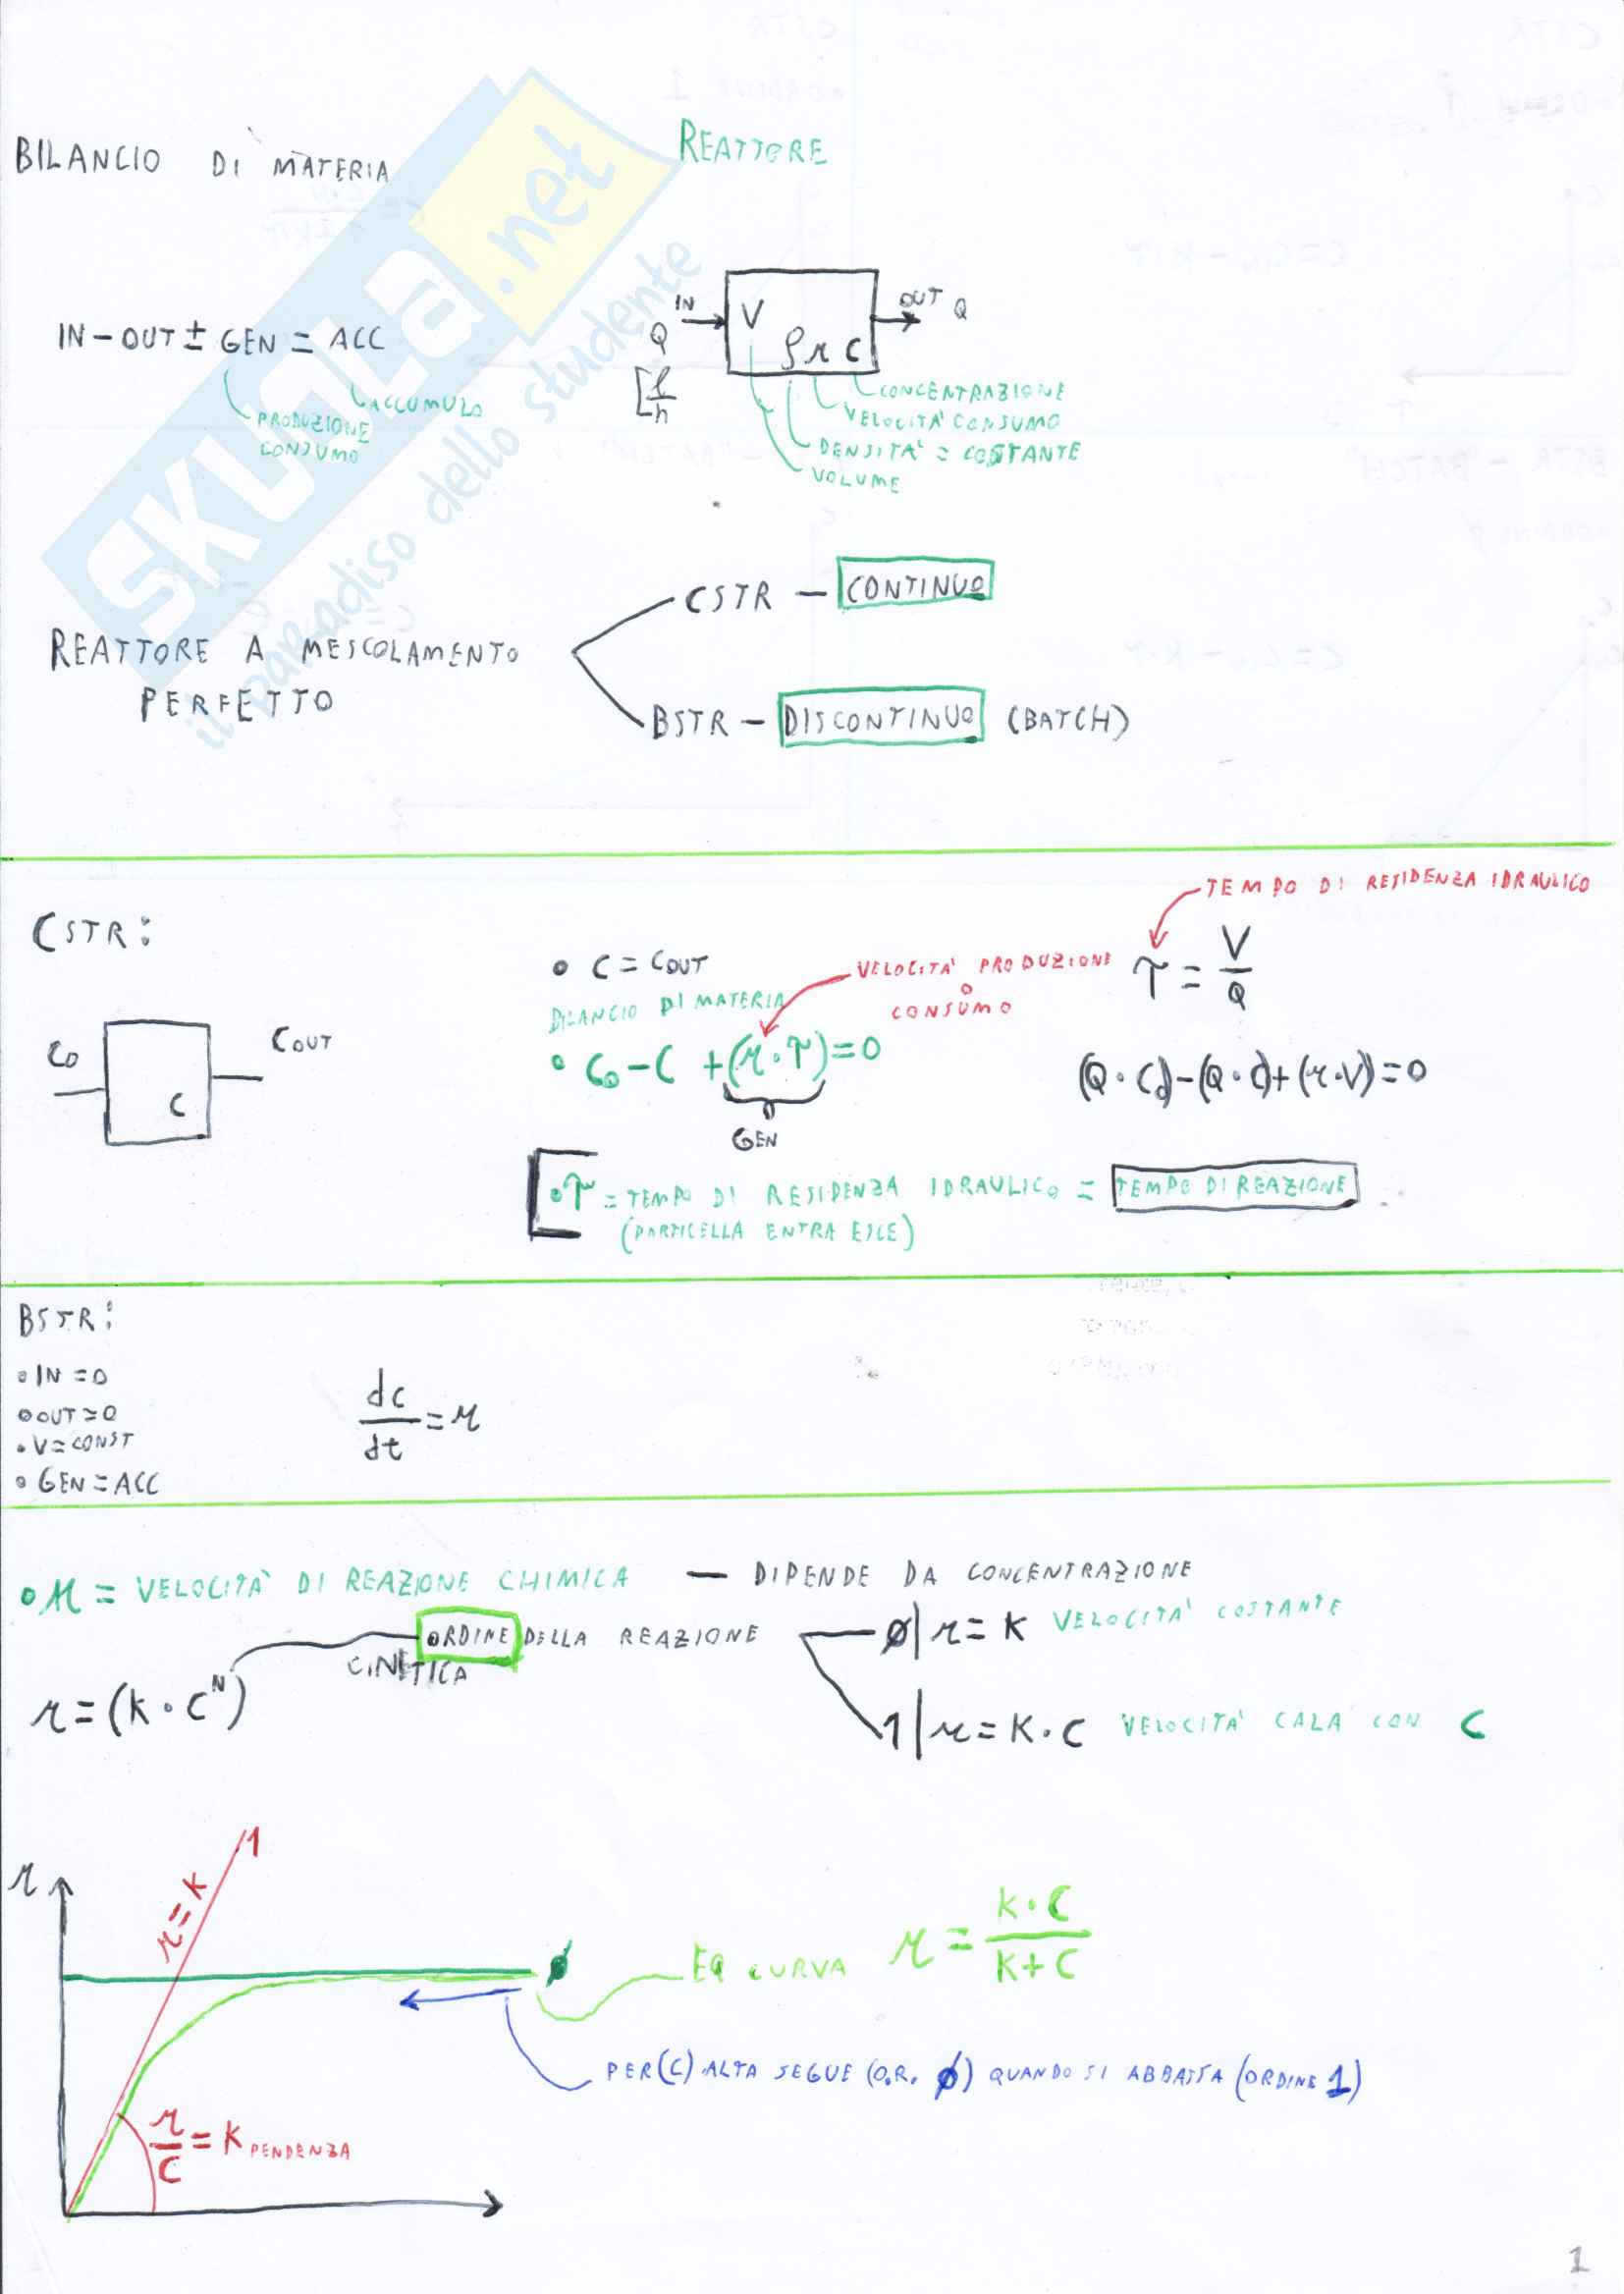 BILANCIO DI MATERIA
REATTORE
IN - OUT ± GEN = ACC
ACCUMULO
PRODUZIONE
CONSUMO
IN
Q
[l/h
V ρ r C
OUT Q
CONCENTRAZIONE
VELOCITA' CONSUMO
DENSITA' = COSTANTE
VOLUME
SKUOLA.net
il paradiso dello studente
REATTORE A MESCOLAMENTO
PERFETTO
CSTR - CONTINUO
BSTR - DISCONTINUO (BATCH)
CSTR:
C0
C
COUT
• C = COUT
BILANCIO DI MATERIA
VELOCITA' PRODUZIONE
O
CONSUMO
TEMPO DI RESIDENZA IDRAULICO
τ = V/Q
• C0 - C + (r · τ) = 0
GEN
(Q · C0) - (Q · C) + (r · V) = 0
• τ = TEMPO DI RESIDENZA IDRAULICO = TEMPO DI REAZIONE
(PARTICELLA ENTRA ESCE)
BSTR:
• IN = 0
• OUT = 0
• V = CONST
• GEN = ACC
dc/dt = r
• r = VELOCITA' DI REAZIONE CHIMICA — DIPENDE DA CONCENTRAZIONE
ORDINE DELLA REAZIONE
CINETICA
r = (K · C^N)
ø | r = K VELOCITA' COSTANTE
1 | r = K · C VELOCITA' CALA CON C
r
r = K
1
ø
EQ CURVA r = K · C / K + C
PER (C) ALTA SEGUE (O.R. ø) QUANDO SI ABBASSA (ORDINE 1)
r/C = K PENDENZA
1